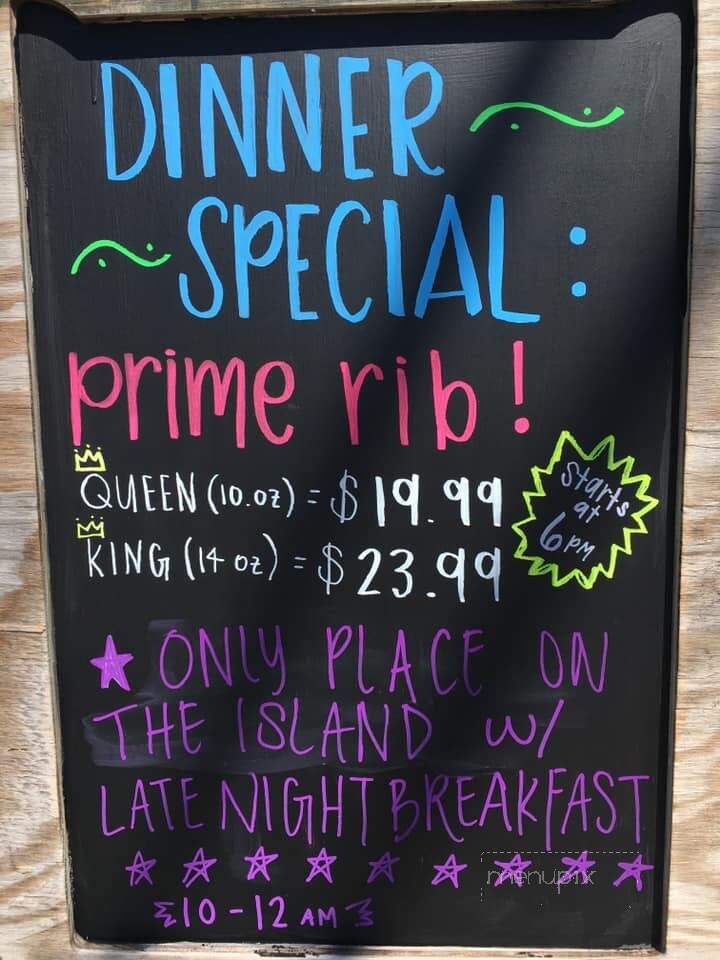 DINNER
SPECIAL:
prime rib!
QUEEN (10.oz) = $19.99
KING (14 oz) = $23.99
Starts
at
6PM
ONLY PLACE ON
THE ISLAND w/
LATE NIGHT BREAKFAST
menupix
10-12 AM